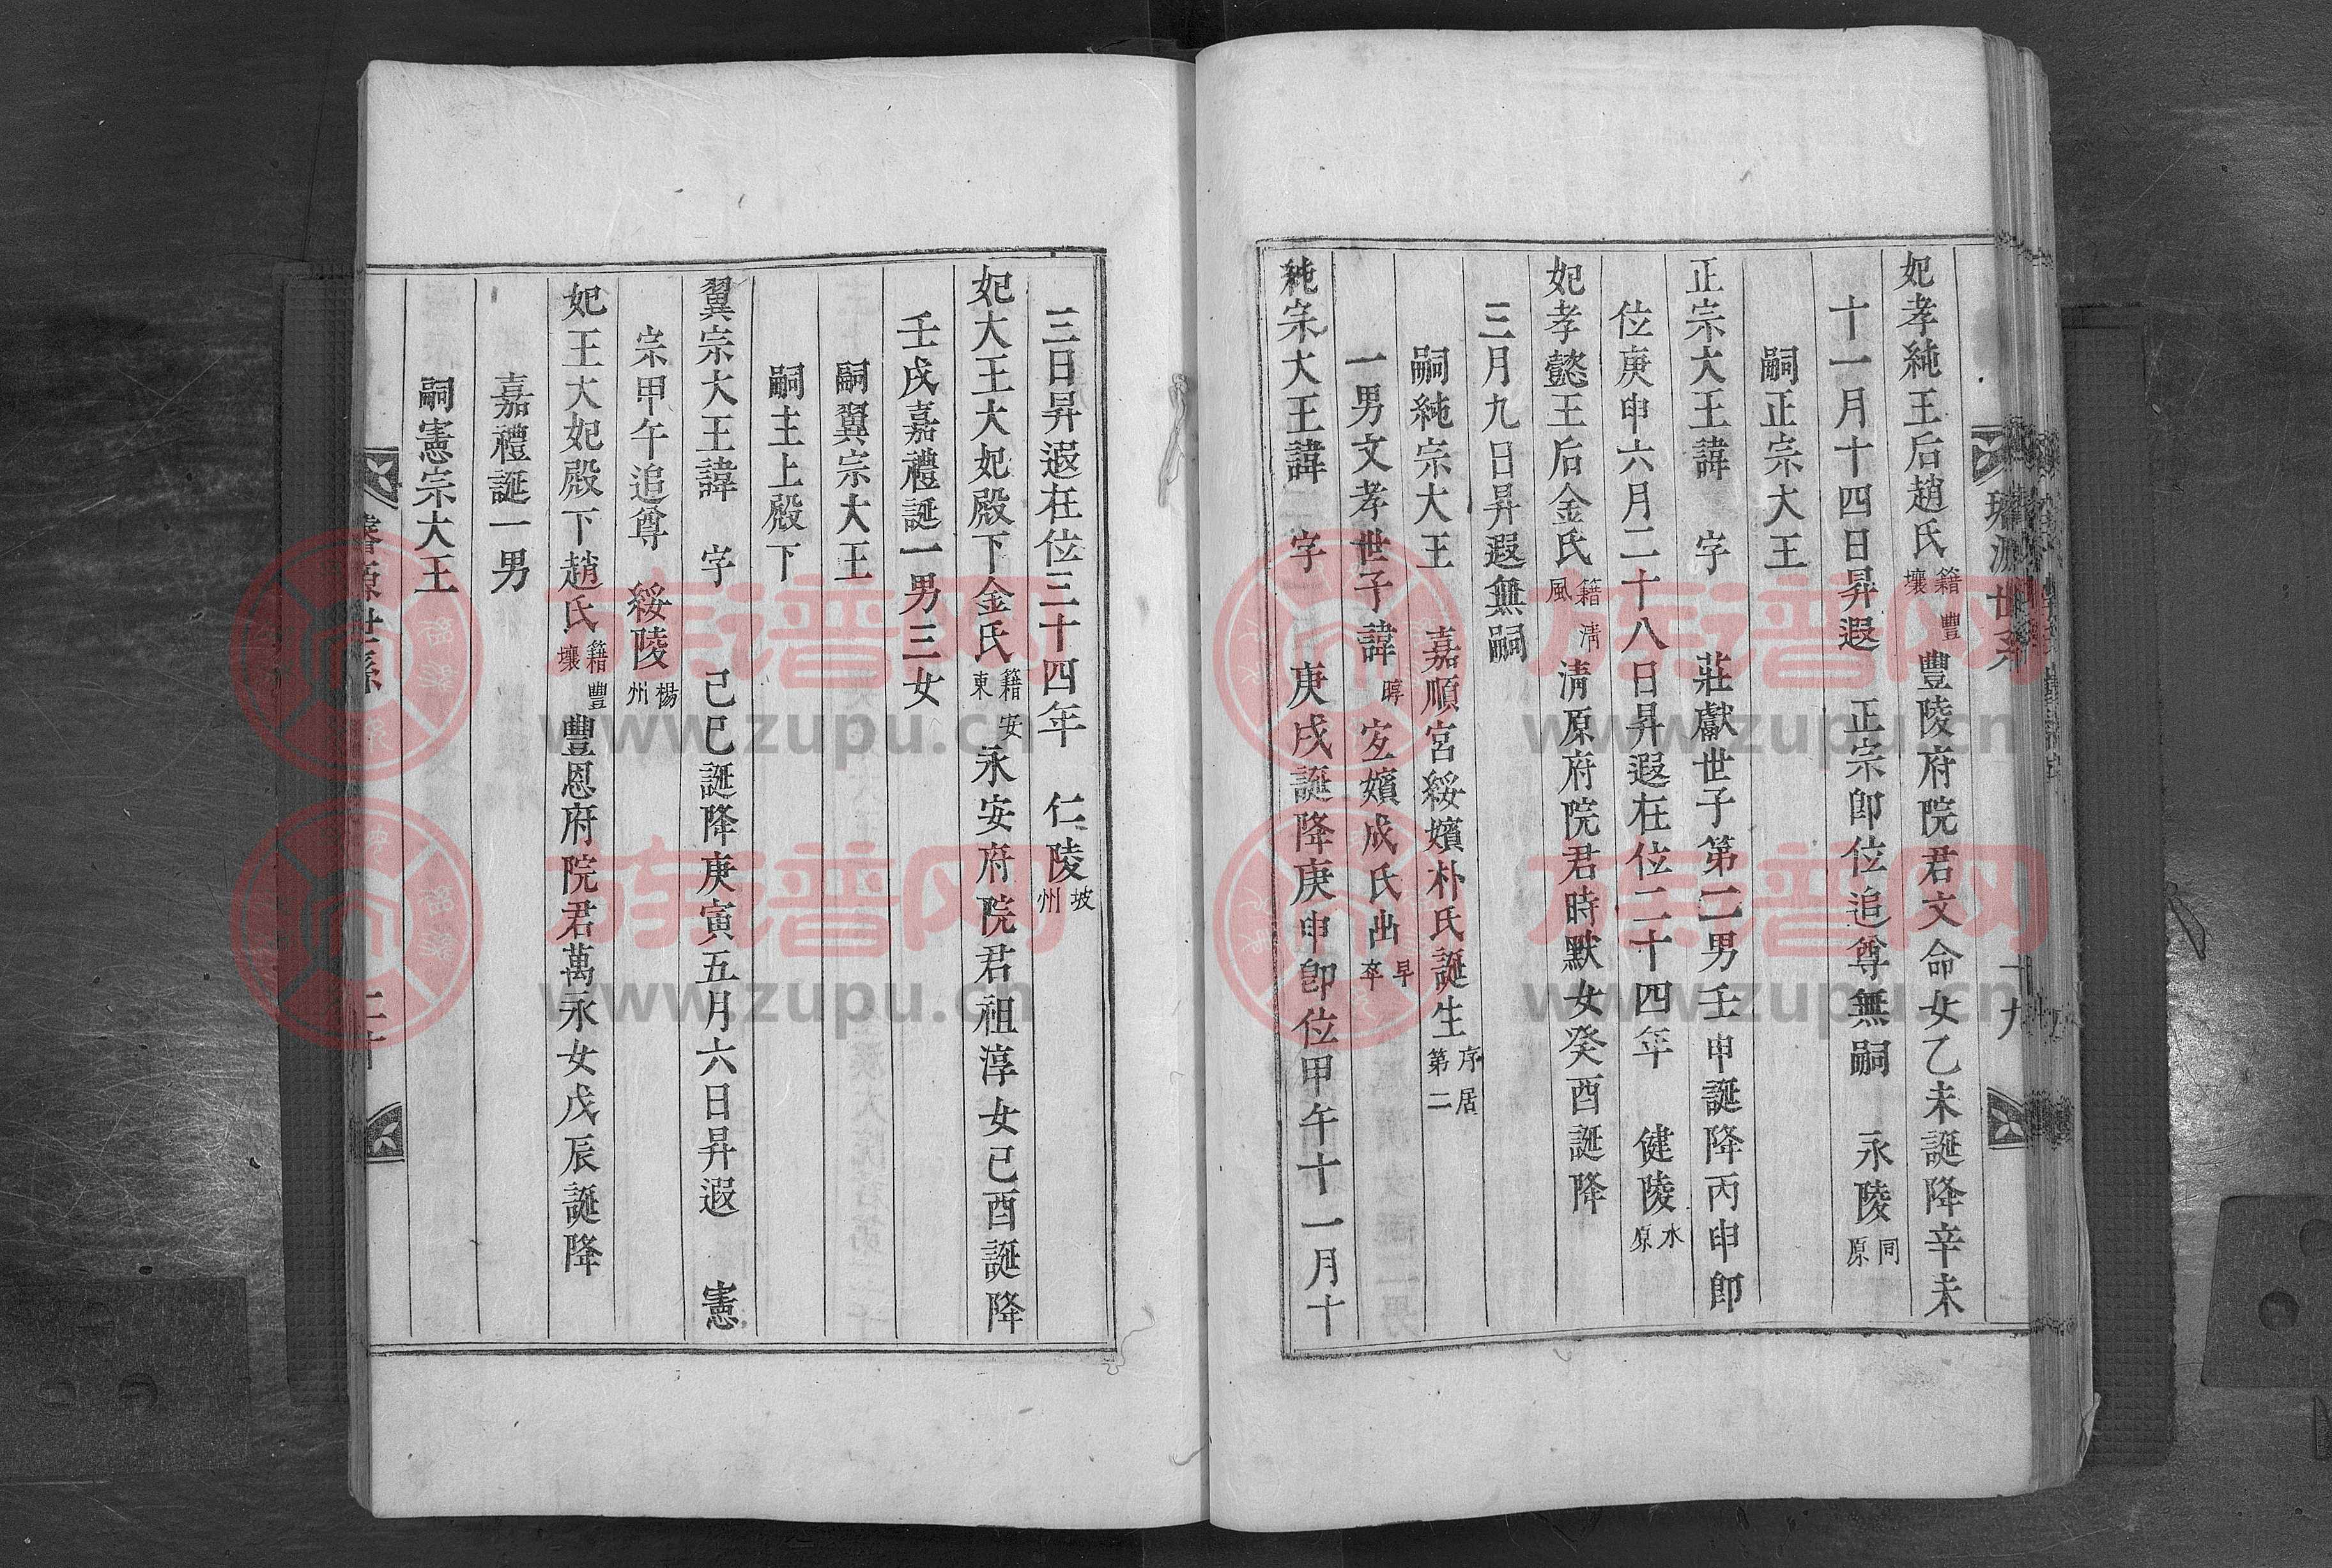 璿源世系
十九
妃孝純王后趙氏籍豐壤 豐陵府院君文命女乙未誕降辛未
十一月十四日昇遐 正宗卽位追尊無嗣 永陵同原
嗣正宗大王
正宗大王諱 字 莊獻世子第二男壬申誕降丙申卽
位庚申六月二十八日昇遐在位二十四年 健陵水原
妃孝懿王后金氏籍清風 淸原府院君時默女癸酉誕降
三月九日昇遐無嗣
嗣純宗大王 嘉順宮綏嬪朴氏誕生序居第二
一男文孝世子諱㬀 宜嬪成氏出早卒
純宗大王諱 字 庚戌誕降庚申卽位甲午十一月十
三日昇遐在位三十四年 仁陵坡州
妃大王大妃殿下金氏籍安東 永安府院君祖淳女己酉誕降
壬戌嘉禮誕一男三女
嗣翼宗大王
嗣主上殿下
翼宗大王諱 字 己巳誕降庚寅五月六日昇遐 憲
宗甲午追尊 綏陵楊州
妃王大妃殿下趙氏籍豐壤 豐恩府院君萬永女戊辰誕降
嘉禮誕一男
嗣憲宗大王
璿源世系
二十
族谱网
www.zupu.cn
族谱网
www.zupu.cn
族谱网
www.zupu.cn
族谱网
www.zupu.cn